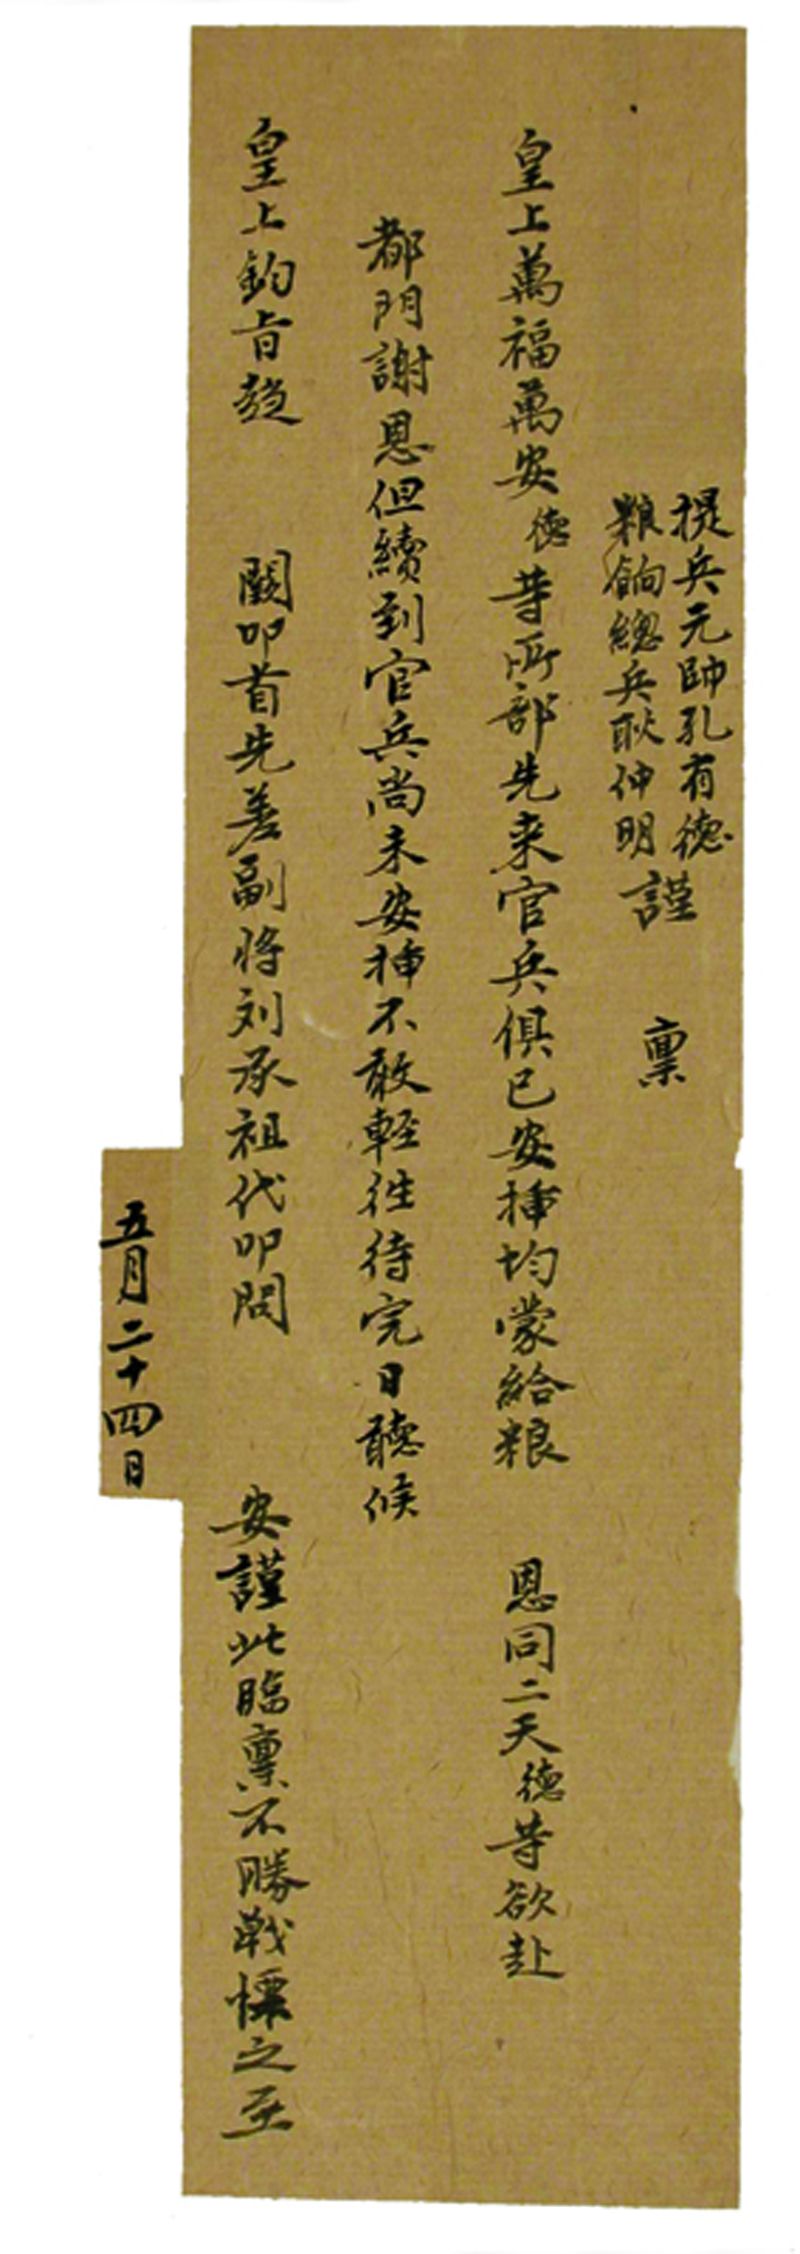 提兵元帥孔有德
粮餉總兵耿仲明
謹 稟
皇上萬福萬安德等所部先来官兵俱已安挿均蒙給粮 恩同二天德等欲赴
都門謝恩但續到官兵尚未安挿不敢輕往待完日聽候
皇上鈞旨趨 闕叩首先差副将刘承祖代叩問 安謹此臨稟不勝戰慄之至
五月二十四日